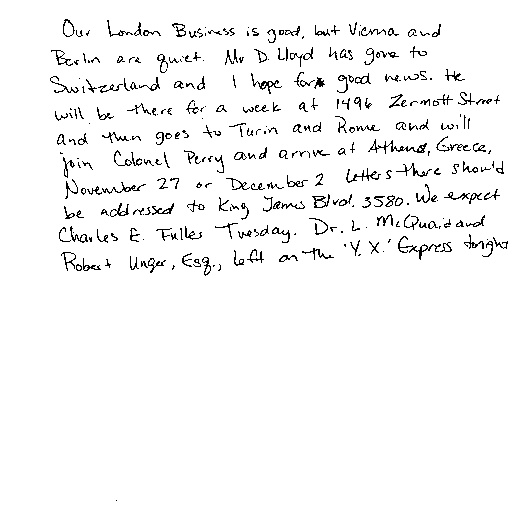 Our London Business is good, but Vienna and
Berlin are quiet. Mr D. Lloyd has gone to
Switzerland and I hope for good news. He
will be there for a week at 1496 Zermott Street
and then goes to Turin and Rome and will
join Colonel Perry and arrive at Athens, Greece,
November 27 or December 2 Letters there should
be addressed to King James Blvd. 3580. We expect
Charles E. Fuller Tuesday. Dr. L. McQuaid and
Robert Unger, Esq., left on the 'Y. X.' Express tonight